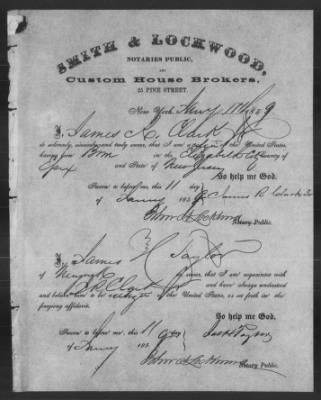 SMITH & LOCKWOOD,
NOTARIES PUBLIC,
AND
Custom House Brokers,
55 PINE STREET.
New York, Jany 11th 1859
I, James R. Clark Jr
do solemnly, sincerely and truly swear, that I am a citizen of the United States,
having been Born in the Elizabeth County of
Essex and State of New Jersey
So help me God.
Sworn to before me, this 11 day
of Jany 1859 James R Clark Jr
Notary Public.
I, James H Taylor
of New York do swear, that I am acquainted with
J. R. Clark Jr and have always understood
and believe him to be a citizen of the United States, as set forth in the
foregoing affidavit.
So help me God.
Sworn to before me, this 11 day Jas H Taylor
of Jany 185
Notary Public.